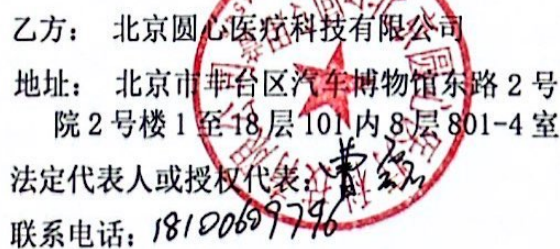 乙方： 北京圆心医疗科技有限公司
地址： 北京市丰台区汽车博物馆东路 2 号
院 2 号楼 1 至 18 层 101 内 8 层 801-4 室
法定代表人或授权代表：
联系电话：18100609796